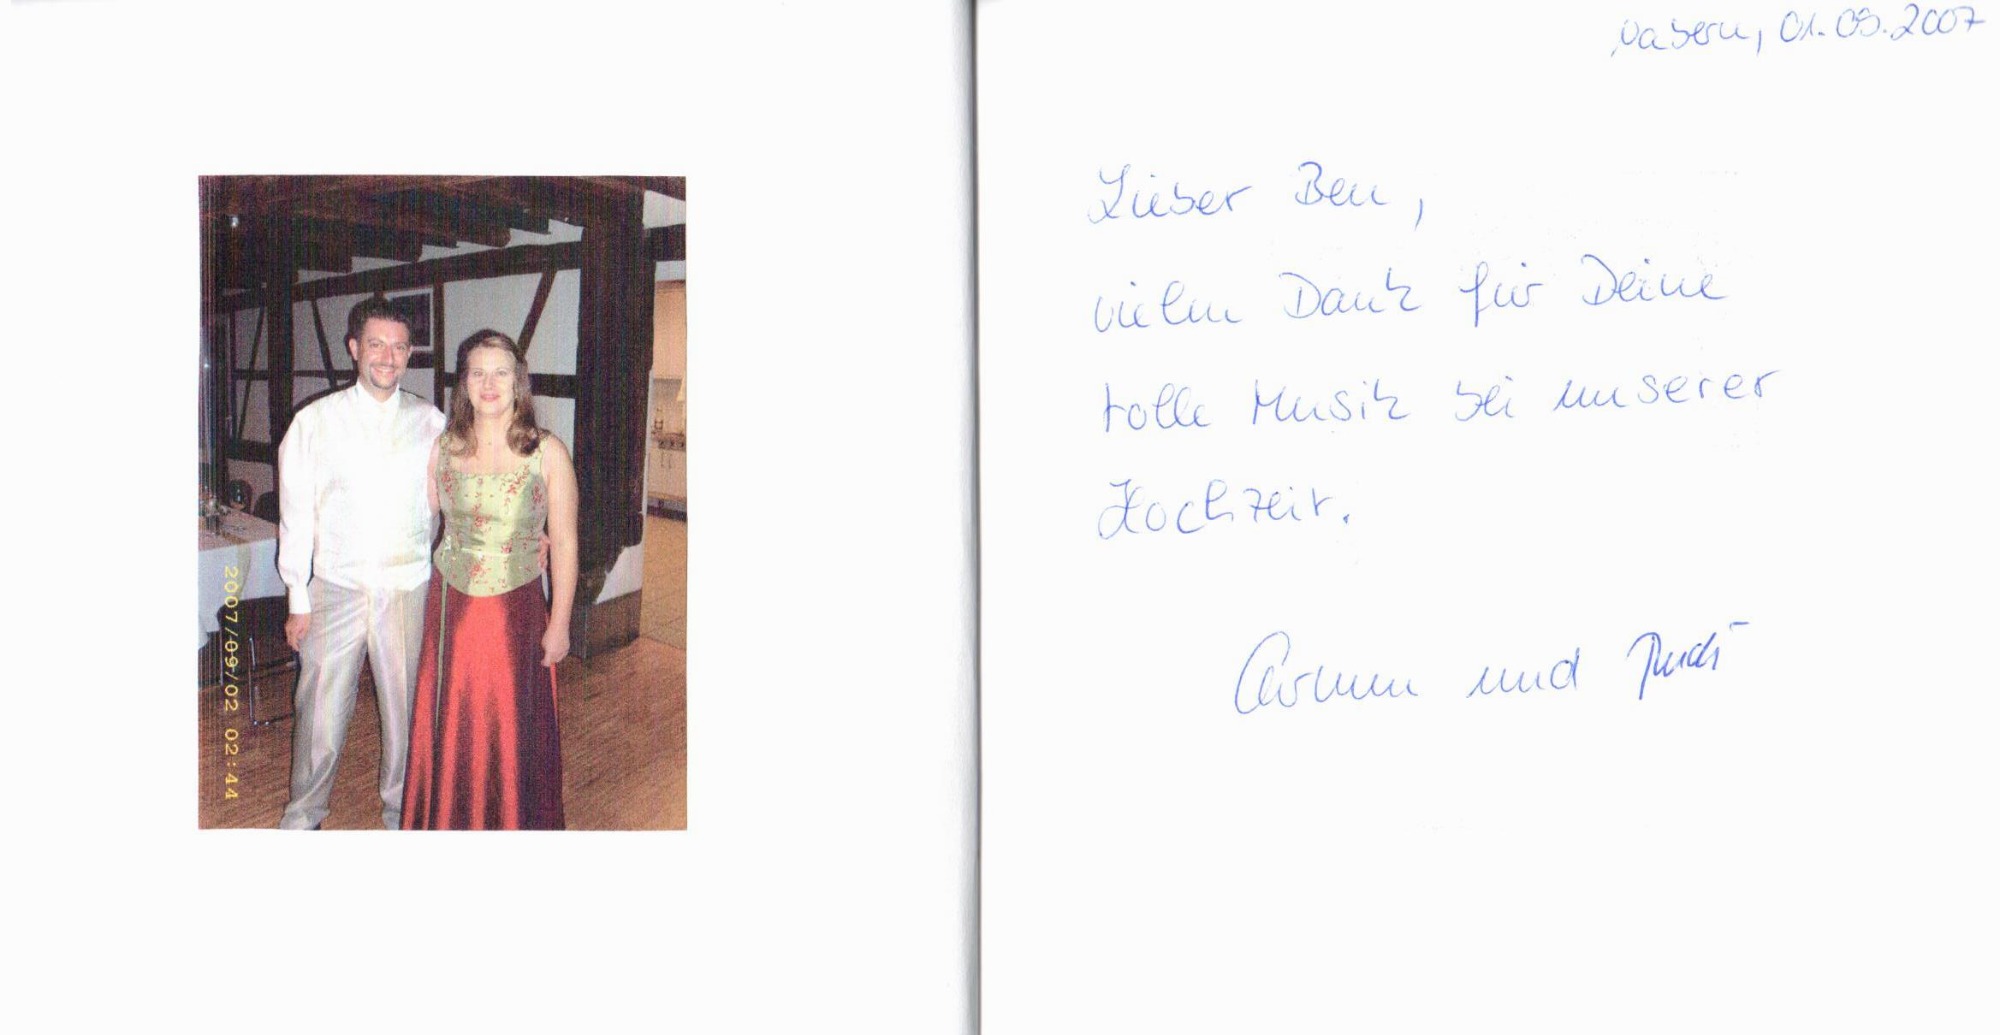 2007/09/02 02:44
Wabern, 01.09.2007
Lieber Ben,
vielen Dank für Deine
tolle Musik bei unserer
Hochzeit.
Carmen und